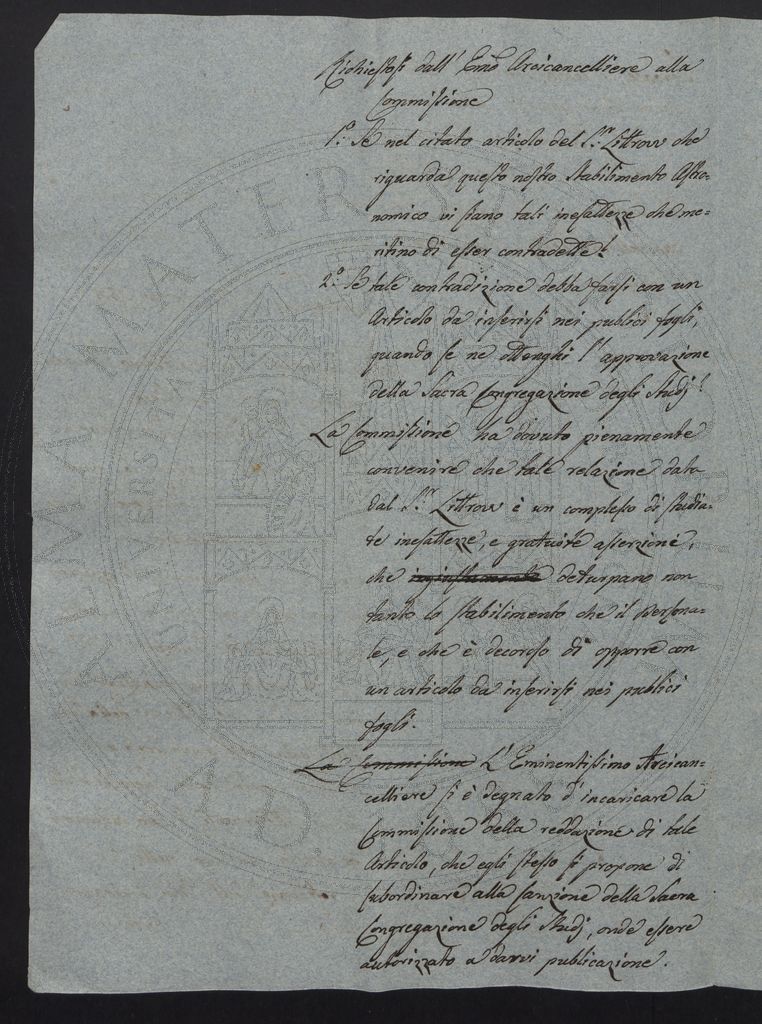 Richiestosi dall' Emo Arcicancelliere alla
Commissione
1.o Se nel citato articolo del S.r Littrow che
riguarda questo nostro Stabilimento Astro=
nomico vi siano tali inesattezze che me=
ritino di esser contradette?
2.o Se tale contradizione debba farsi con un
Articolo da inserirsi nei publici fogli,
quando se ne ottenghi l' approvazione
della Sacra Congregazione degli Studj?
La Commissione ha dovuto pienamente
convenire che tale relazione data
dal S.r Littrow è un complesso di studia=
te inesattezze, e gratuite asserzioni,
che ingiustamente deturpano non
tanto lo stabilimento che il persona=
le, e che è decoroso di opporre con
un articolo da inserirsi nei publici
fogli.
La Commissione L' Eminentissimo Arcican=
celliere si è degnato d' incaricare la
Commissione della reddazione di tale
Articolo, che egli stesso si propone di
subordinare alla sanzione della Sacra
Congregazione degli Studj, onde essere
autorizzato a darvi publicazione.
ALMA MATER STUDIORUM
UNIVERSITA